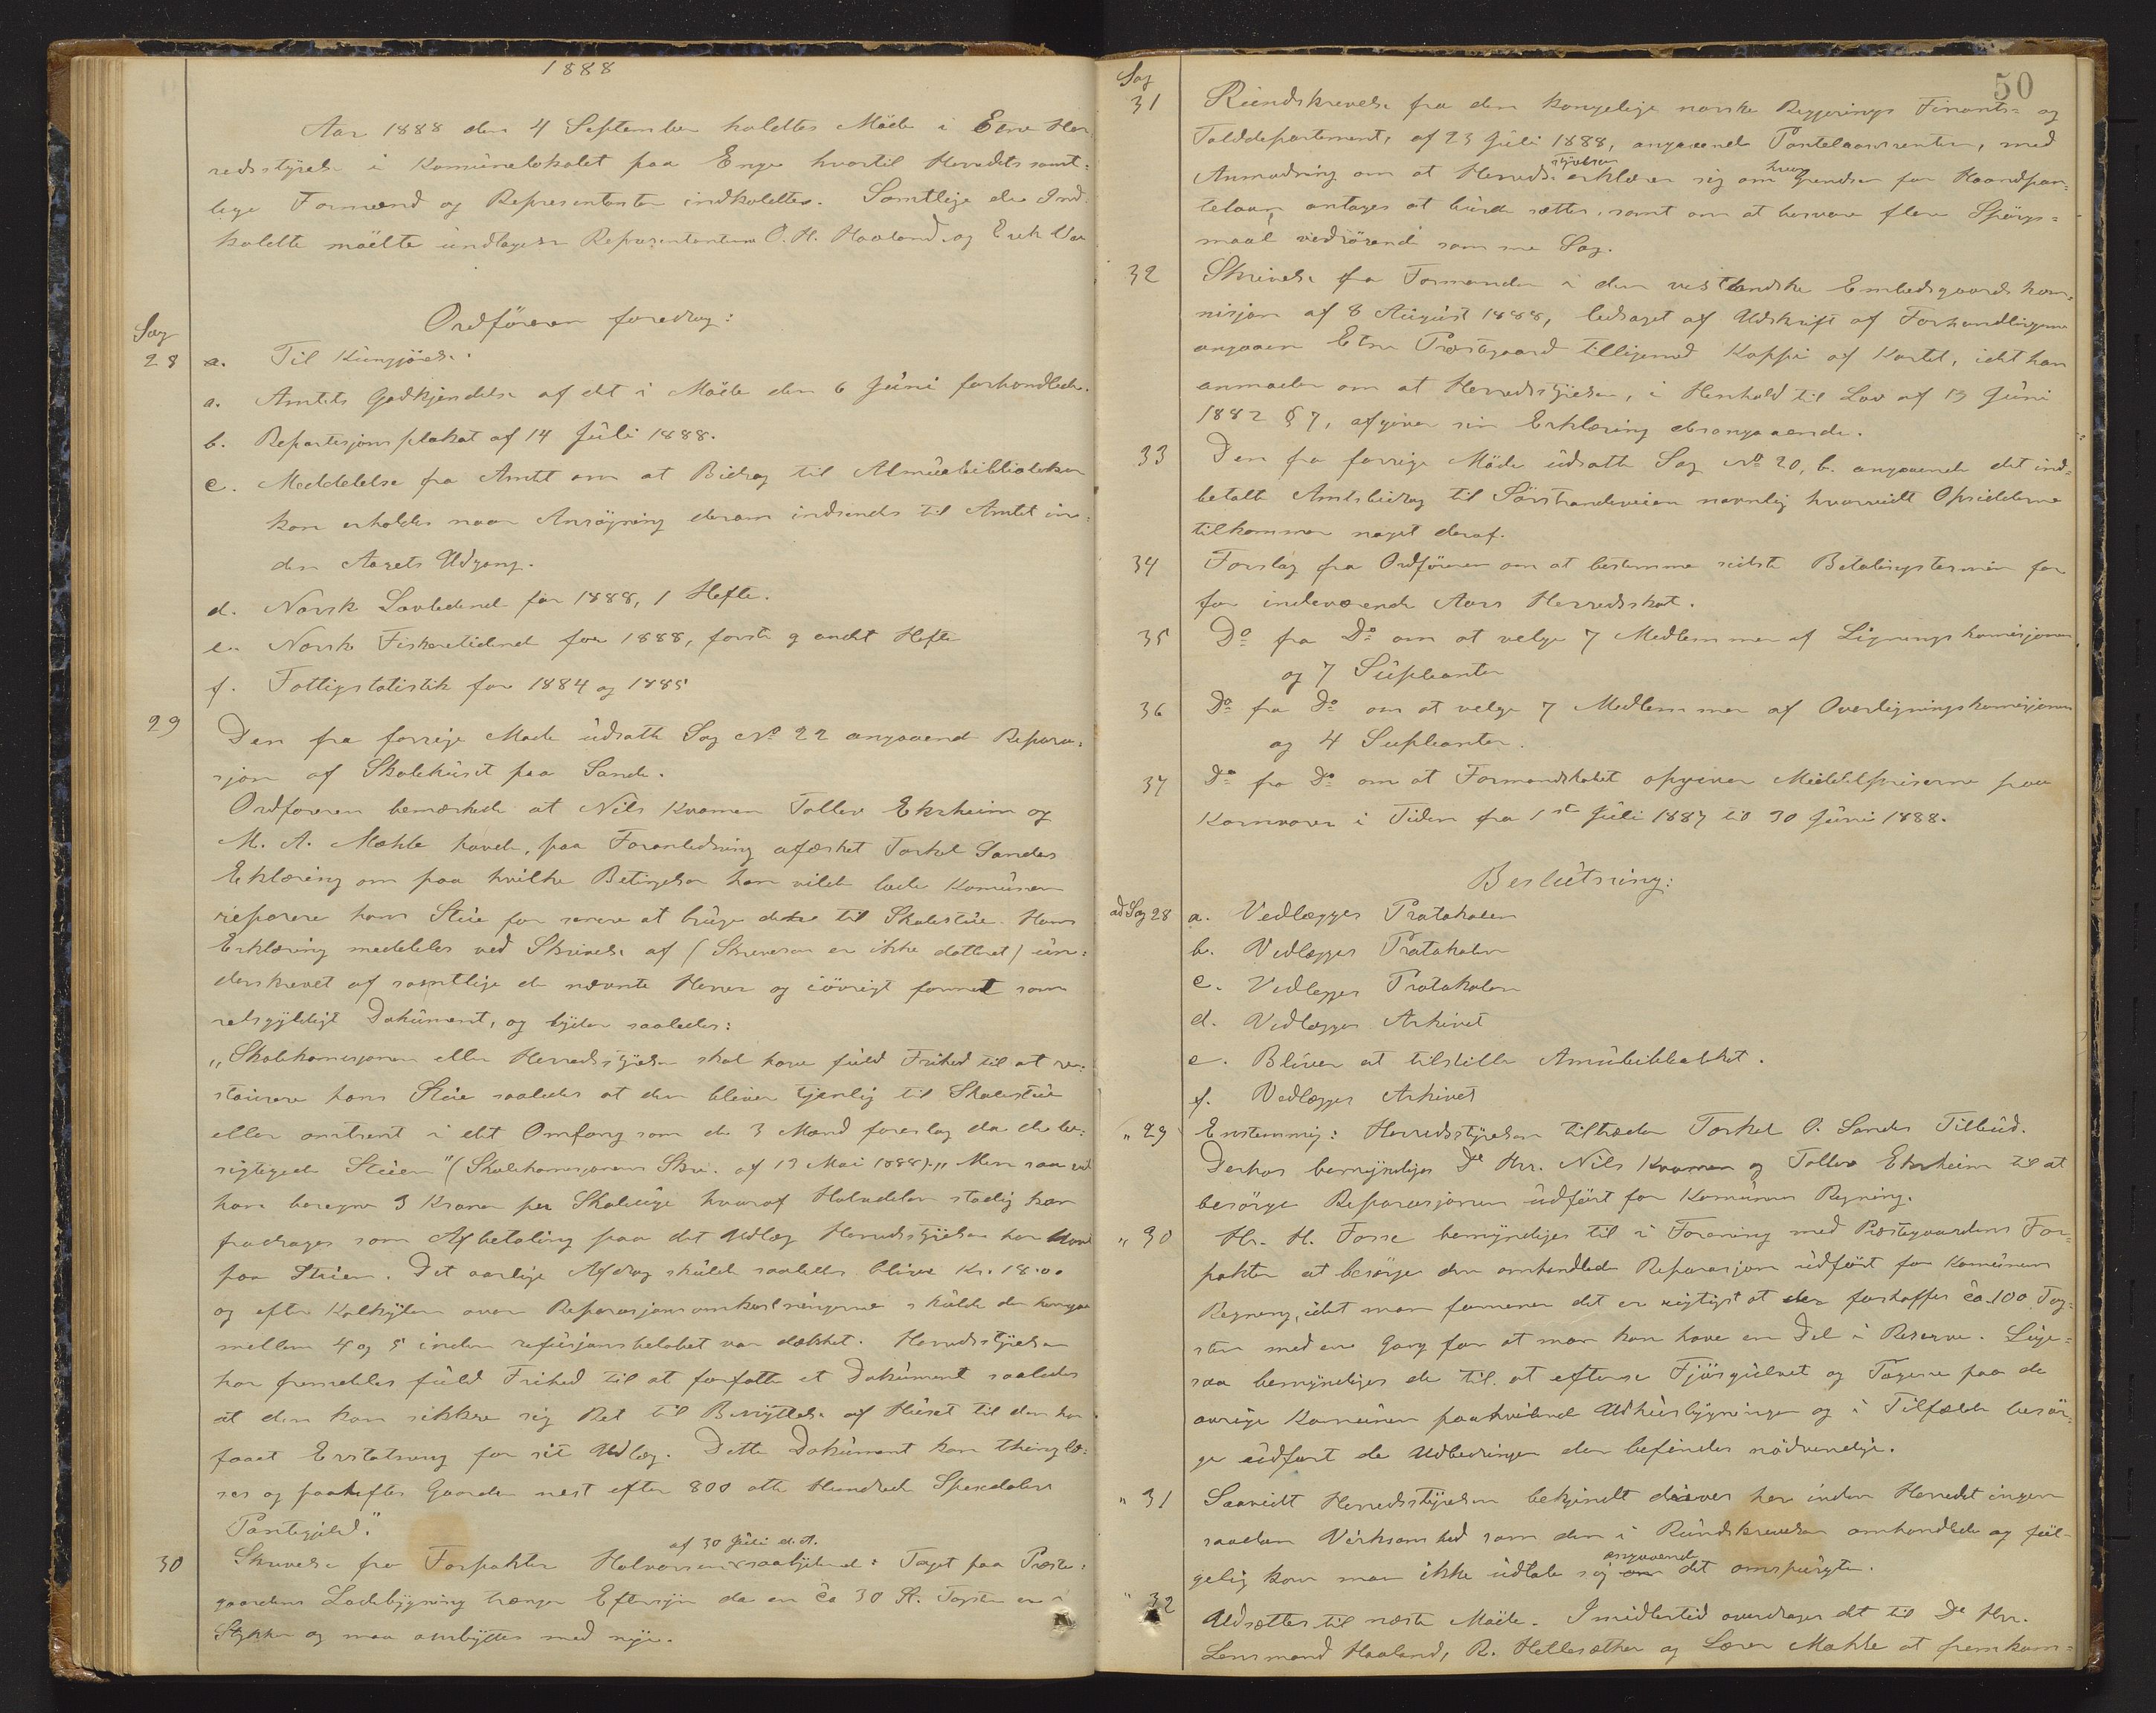 1888
Aar 1888 den 4 September holdtes Möde i Etne Her-
redsstyrelse i Komünelokalet paa Enge hvortil Herredets samt-
lige Formænd og Representanter indkaldtes. Samtlige de Ind-
kaldte mödte undtagen Representanterne O. H. Haaland og Erik
Ordföreren foredrog:
Sag
28 a. Til Küngjörelse.
a. Amtets Godkjendelse af det i Möde den 6 Jüni forhandlede.
b. Repartisjons plakat af 14 Jüli 1888.
c. Meddelelse fra Amtet om at Bidrag til Almüebibliotheker
kan erholdes naar Ansögning derom indsendes til Amtet in-
den Aarets Udgang.
d. Norsk Lovtidend for 1888, 1 Hefte.
e. Norsk Fiskeritidend for 1888, forste og andet Hefte
f. Fattigstatistik for 1884 og 1885
29 Den fra forrige Möde üdsatte Sag No 22 angaaende Repara-
sjon af Skolehüset paa Sande.
Ordföreren bemærkede at Nils Kvamen Tollev Ekrheim og
M. A. Mæhle havde, paa Foranledning afæsket Torkel Sandes
Erklæring om paa hvilke Betingelser han vilde lade Komünen
reparere hans Stüe for senere at brüge dette til Skolestüe. Hans
Erklæring meddeles ved Skrivelse af (Skrivelsen er ikke datteret) ün-
derskrevet af samtlige de nævnte Herrer og iövrigt formet som
retsgyldigt Doküment, og lyder saaledes:
„Skolekomisjonen eller Herredsstyrelsen skal have füld Frihed til at re-
staürere hans Stüe saaledes at den bliver tjenlig til Skolestüe
eller omtrent i det Omfang som de 3 Mænd foreslog da de be-
sigtigede Stüen" (Skolekomisjonens Skr. af 13 Mai 1888). „Men saa vil
han beregne 3 Kroner per Skoleüge hvoraf Halvdelen stadig kan
fradrages som Afbetaling paa det Udlæg Herredsstyrelsen har havt
paa Stüen. Det aarlige Afdrag skülde saaledes blive Kr. 18.00
og efter Kalkylen over Reparasjonsomkostningerne skülde der hengaa
mellem 4 og 5 inden refüsjonsbelobet var dækket. Herredsstyrelsen
har fremdeles füld Frihed til at forfatte et Doküment saaledes
at den kan sikkre sig Ret til Benyttelse af Hüset til den har
faaet Erstatning for sit Udlæg. Dette Doküment kan thinglæ-
ses og paahefter Gaarden nest efter 800 otte Hundrede Speciedalers
Pantegjeld."
30 Skrivelse fra Forpakter Halvorsen af 30 Jüli d. A. saalydende: Taget paa Præste-
gaardens Ladebygning trænger Eftersyn da en ca 30 St. Tagsten er i
Stykker og maa ombyttes med nye.
50
Sag
31 Ründskrivelse fra den kongelige norske Regjerings Finants- og
Tolddepartement, af 23 Jüli 1888, angaaende Pantelaansrenten, med
Anmodning om at Herredsstyrelsen erklærer sig om hvor Grendsen for Haandpan-
telaan, antages at bürde sættes, samt om at besvare flere Spörgs-
maal vedrörende samme Sag.
32 Skrivelse fra Formanden i den vestlandske Embedsgaardskom-
misjon af 8 Aügüst 1888, ledsaget af Udskrift af Forhandlingerne
angaaen Etne Præstegaard tilligemed Koppi af Kartet, idet han
anmoder om at Herredsstyrelsen, i Henhold til Lov af 13 Jüni
1882 § 7, afgiver sin Erklæring desangaaende.
33 Den fra forrige Möde üdsatte Sag No 20, b. angaaende det ind-
betalte Amtsbidrag til Sörstrandeveien navnlig hvorvidt Opsidderne
tilkommer noget deraf.
34 Forslag fra Ordföreren om at bestemme sidste Betalingstermin for
for indeværende Aars Herredsskat.
35 Do fra Do om at velge 7 Medlemmer af Ligningskomisjonen
og 7 Süpleanter
36 Do fra Do om at velge 7 Medlemmer af Overligningskomisjonen
og 4 Supleanter.
37 Do fra Do om at Formandskabet opgiver Middelpriserne paa
Kornvarer i Tiden fra 1ste Jüli 1887 til 30 Jüni 1888.
Beslütning:
ad Sag 28 a. Vedlægges Protokolen
b. Vedlægges Protokolen
c. Vedlegges Protokolen
d. Vedlægges Arkivet
e. Bliver at tilstille Amübibliotket.
f. Vedlægges Arkivet
„ 29 Enstemmig: Herredsstyrelsen tiltræder Torkel O. Sandes Tilbüd.
Derhos bemyndiges De Hrr. Nils Kvamen og Tollev Ekrheim til at
besörge Reparasjonen üdfört for Komünens Regning.
„ 30 Hr. H. Fosse bemyndiges til i Forening med Præstegaardens For-
pakter at besörge den omhandlede Reparasjon üdfört for Komünens
Regning, idet man formener det er rigtigst at der forskaffes ca. 100 Tag-
sten med en Gang for at man kan have en Del i Reserve. Lige-
saa bemyndiges de til at efterse Fjösgülvet og Tagene paa de
ovrige Komünen paahvilende Udhüsbygninger og i Tilfælde besör-
ge üdfört de Udbedringer der befindes nödvendige.
„ 31 Saavidt Herredsstyrelsen bekjendt drives her inden Herredet ingen
saadan Virksomhed som den i Rundskrivelsen omhandlede og föl-
gelig kan man ikke üdtale sig angaaende det omspürgte.
„ 32 Udsættes til næste Möde. Imidlertid overdrages det til De Hrr.
Lensmand Haaland, R. Hellesæther og Lærer Mæhle at fremkom-